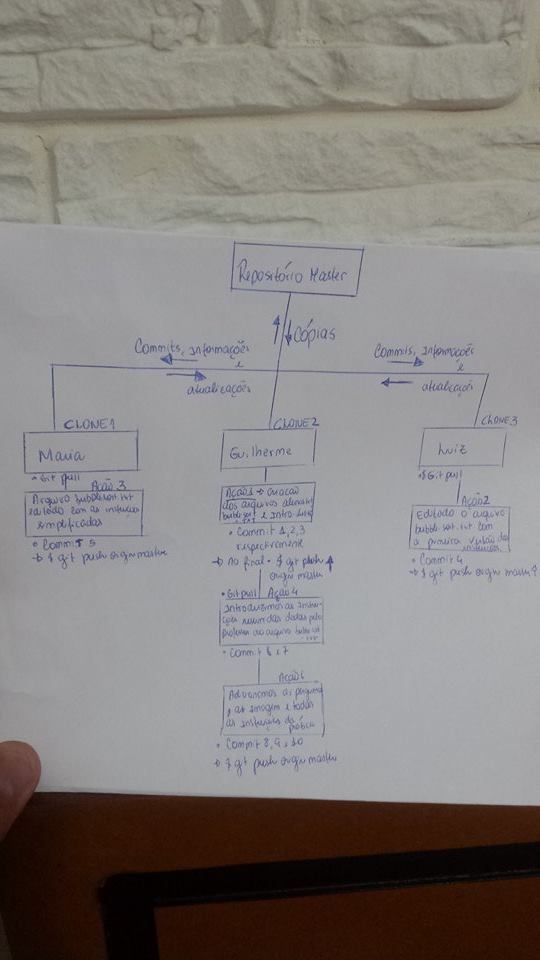 Repositório Master
Cópias
Commits, informações
e
atualizações
Commits, informações
e
atualizações
CLONE 1
Maria
• Git pull
Ação 3
Arquivo bubblesort.txt
editado com as instruções
simplificadas
• Commit 5
→ $ git push origin master
CLONE 2
Guilherme
Ação 1 → criação
dos arquivos
bubblesort e
• Commit 1,2,3
respectivamente
→ no final - $ git push
origin master
• Git pull Ação 4
Introduzimos as instru-
ções resumidas dadas pelo
professor ao arquivo
• Commit 6 e 7
Ação
as perguntas
imagem e todas
as instruções da prática
• Commit 8, 9 e 10
→ $ git push origin master
CLONE 3
Luiz
• $ Git pull
Ação 2
Editado o arquivo
bubblesort.txt com
a primeira versão das
instruções
• Commit 4
→ $ git push origin master